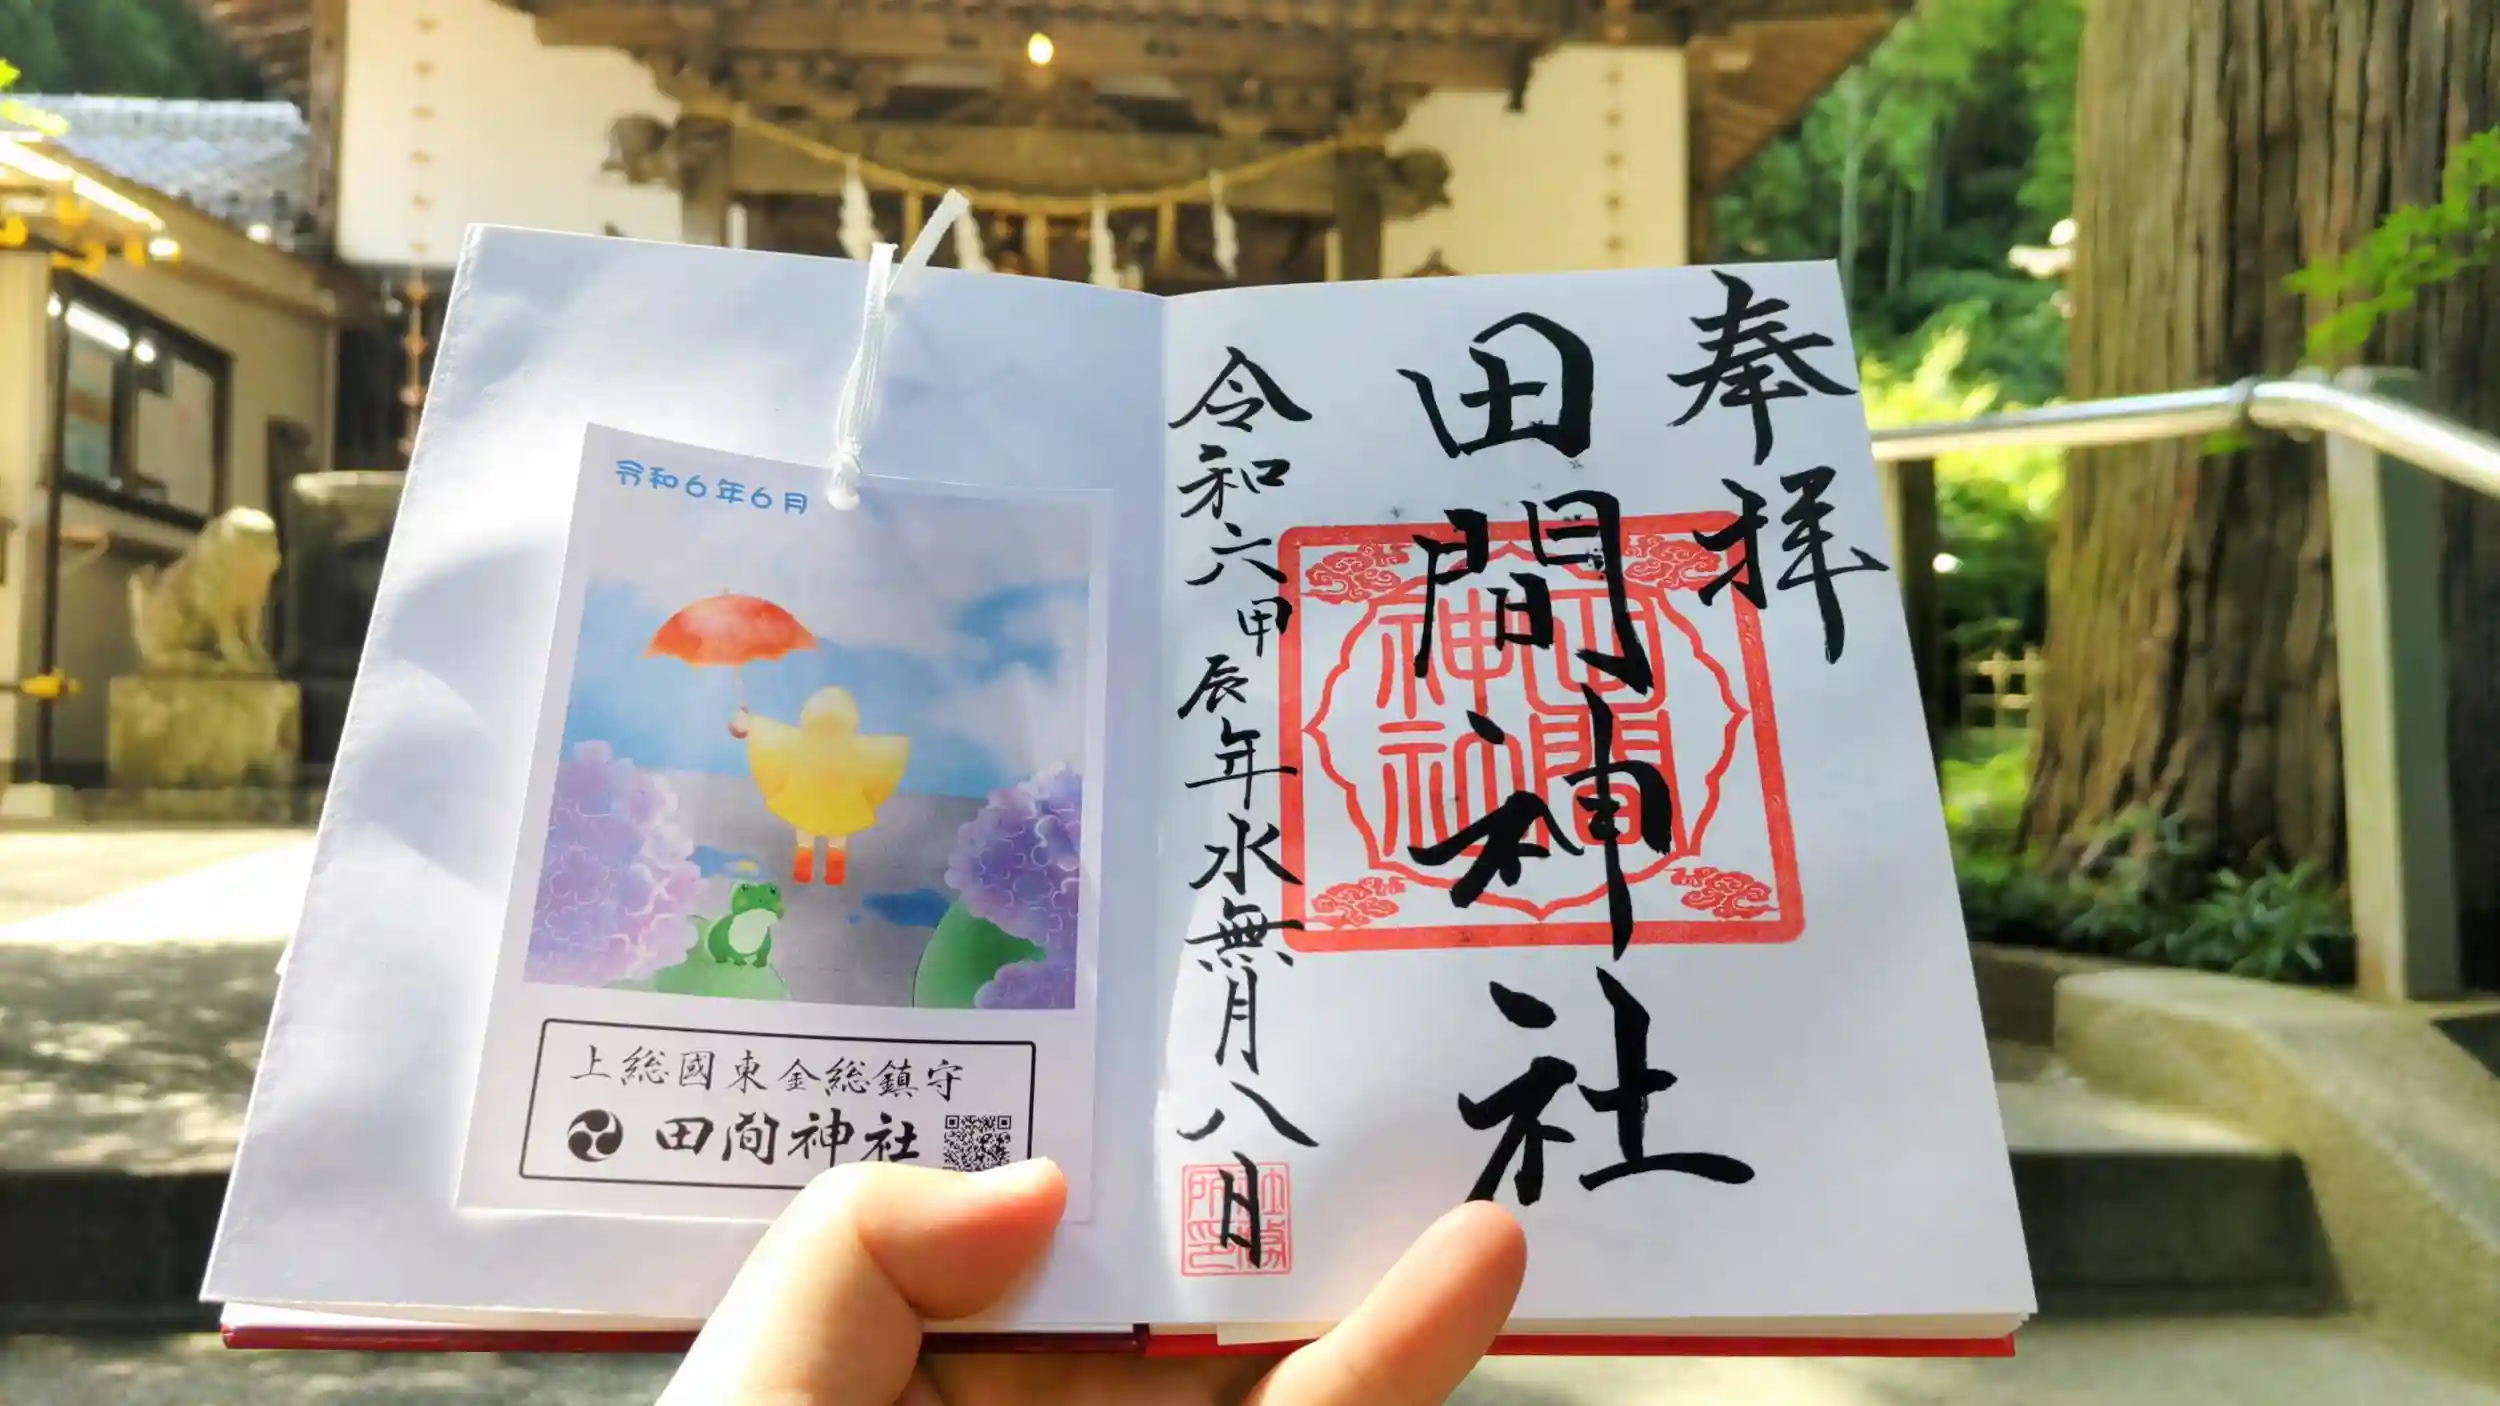 奉拝
田間神社
令和六甲辰年水無月八日
田間神社
社務所印
令和6年6月
上総國東金総鎮守
田间神社